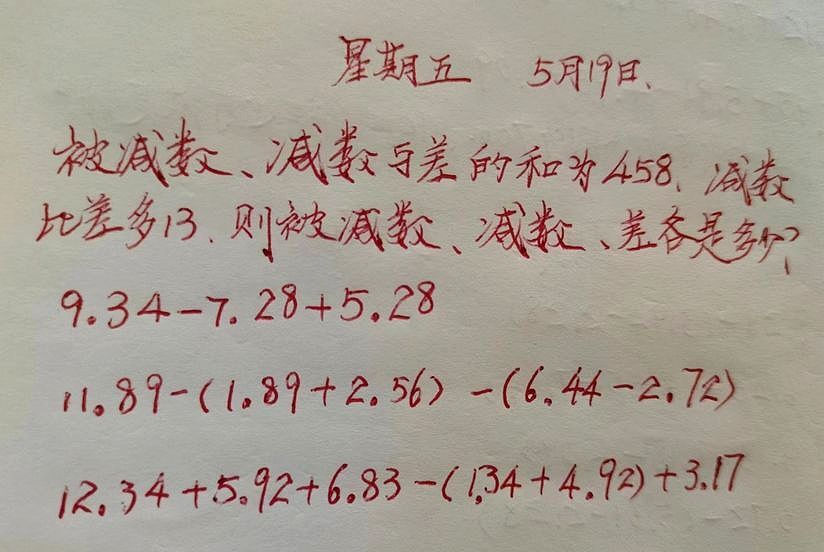 星期五 5月19日.
被减数、减数与差的和为458、减数
比差多13、则被减数、减数、差各是多少?
9.34-7.28+5.28
11.89-(1.89+2.56)-(6.44-2.72)
12.34+5.92+6.83-(1.34+4.92)+3.17